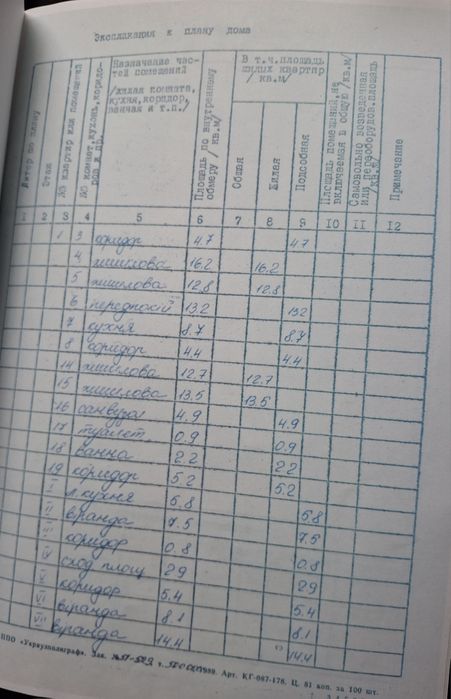 Экспликация к плану дома
Литер по плану
Этаж
№ квартир или помещений
№ комнат, кухонь, коридоров и пр.
Назначение частей помещений
/жилая комната, кухня, коридор, ванная и т.п./
Площадь по внутреннему обмеру /кв.м/
В т.ч. площадь жилых квартир /кв.м/
Общая
Жилая
Подсобная
Площадь помещений, не включаемая в общую /кв.м/
Самовольно возведенная или переоборудов. площадь /кв.м/
Примечание
1 2 3 4 5 6 7 8 9 10 11 12
1 3 коридор 4.7 4.7
4 житлова 16.2 16.2
5 житлова 12.8 12.8
6 передпокій 13.2 13.2
7 кухня 8.7 8.7
8 коридор 4.4 4.4
14 житлова 12.7 12.7
15 житлова 13.5 13.5
16 санвузол 4.9 4.9
17 туалет 0.9 0.9
18 ванна 2.2 2.2
19 коридор 5.2 5.2
I л.кухня 5.8 5.8
II веранда 7.5 7.5
III коридор 0.8 0.8
IV сход площ 2.9 2.9
коридор 5.4 5.4
VI веранда 8.1 8.1
VII веранда 14.4 14.4
ППО «Укрвузполиграф». Зак. т. 1989. Арт. КГ-087-178. Ц. 81 коп. за 100 шт.